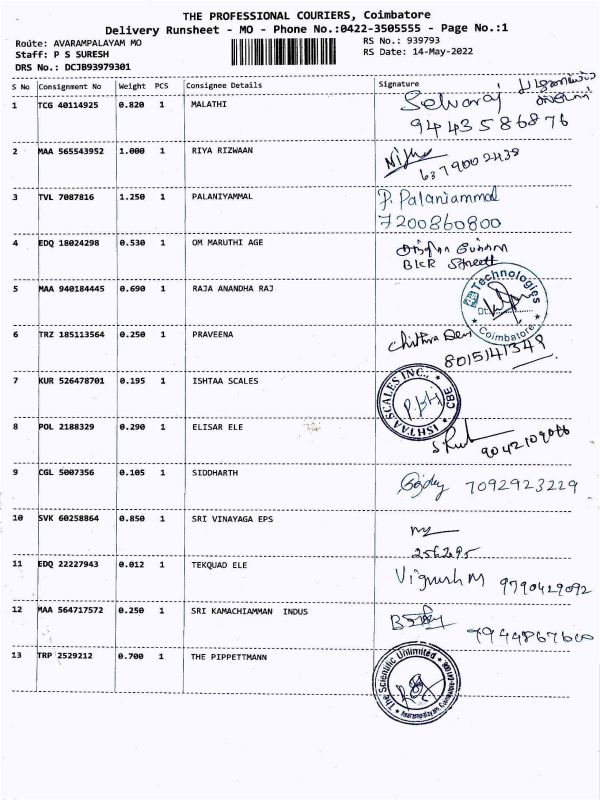 THE PROFESSIONAL COURIERS, Coimbatore
Delivery Runsheet - MO - Phone No.:0422-3505555 - Page No.:1
Route: AVARAMPALAYAM MO
RS No.: 939793
Staff: P S SURESH
RS Date: 14-May-2022
DRS No.: DCJB93979301
S No Consignment No Weight PCS Consignee Details Signature
1 TCG 40114925 0.820 1 MALATHI Selvaraj
9443586876
2 MAA 565543952 1.000 1 RIYA RIZWAAN
6379002438
3 TVL 7087816 1.250 1 PALANIYAMMAL P. Palaniammal
7200860800
4 EDQ 18024298 0.530 1 OM MARUTHI AGE
BKR Street
5 MAA 940184445 0.690 1 RAJA ANANDHA RAJ
Technologies
Dt:
Coimbatore
6 TRZ 185113564 0.250 1 PRAVEENA Chithra Devi
8015141349
7 KUR 526478701 0.195 1 ISHTAA SCALES
ISHTAA SCALES INC., CBE
8 POL 2188329 0.290 1 ELISAR ELE
9042109066
9 CGL 5007356 0.105 1 SIDDHARTH 7092923229
10 SVK 60258864 0.850 1 SRI VINAYAGA EPS
2562695
11 EDQ 22227943 0.012 1 TEKQUAD ELE Vignesh M 9790429092
12 MAA 564717572 0.250 1 SRI KAMACHIAMMAN INDUS
9944867600
13 TRP 2529212 0.700 1 THE PIPPETTMANN
The Scientific Unlimited